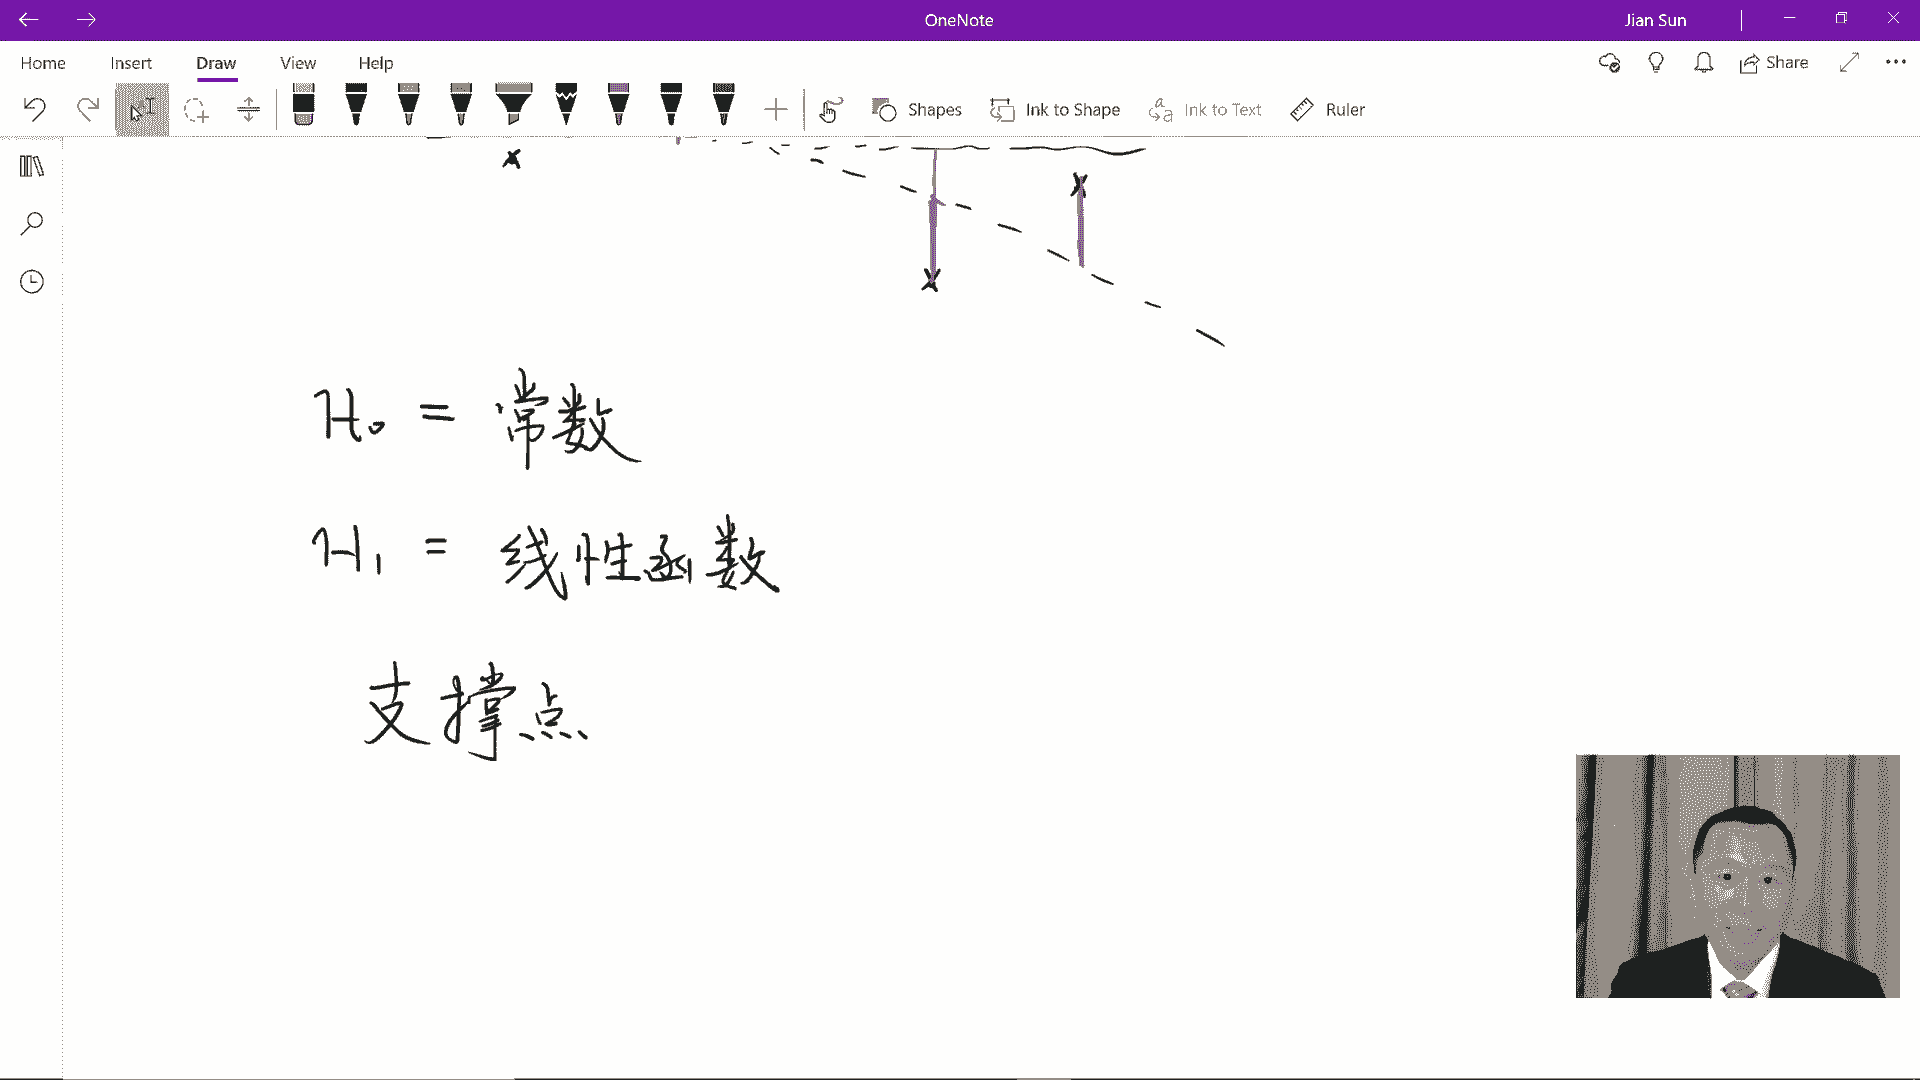 OneNote
Jian Sun
Home Insert Draw View Help
Share
Shapes Ink to Shape Ink to Text Ruler
H₀ = 常数
H₁ = 线性函数
支撑点